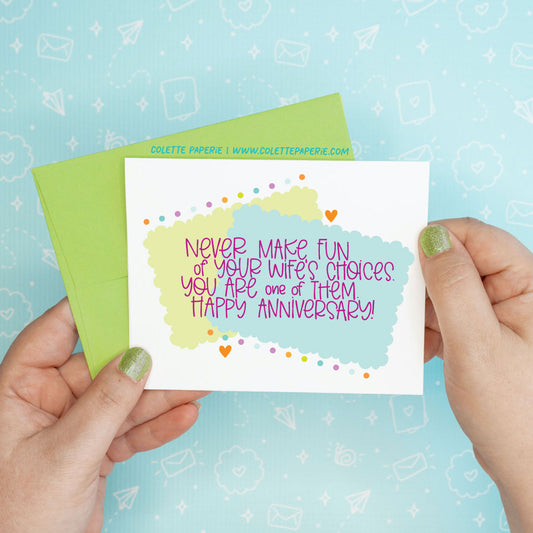 COLETTE PAPERIE | WWW.COLETTEPAPERIE.COM
NEVER MAKE FUN
of YOUR WIFE'S CHOICES.
YOU ARE one of THEM.
HAPPY ANNIVERSARY!